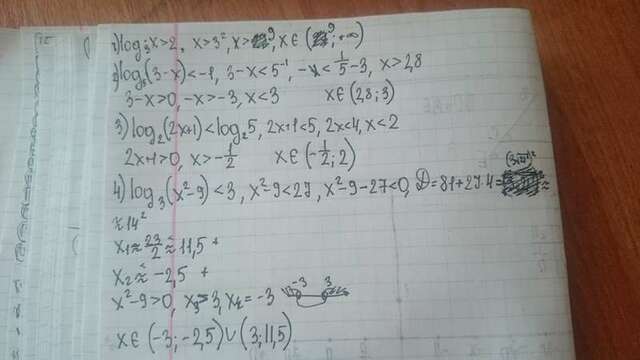 1) log₃x>2, x>3², x>9, x∈(9;+∞)
2) log₅(3-x)<-1, 3-x<5⁻¹, -x<1/5-3, x>2,8
3-x>0, -x>-3, x<3 x∈(2,8;3)
3) log₂(2x+1)<log₂5, 2x+1<5, 2x<4, x<2
2x+1>0, x>-1/2 x∈(-1/2;2)
4) log₃(x²-9)<3, x²-9<27, x²-9-27<0, D=81+27·4= ≈
≈14²
x₁≈23/2≈11,5 +
x₂≈-2,5 +
x²-9>0, x₃=3, x₄=-3 -3 3
x∈(-3;-2,5)∪(3;11,5)